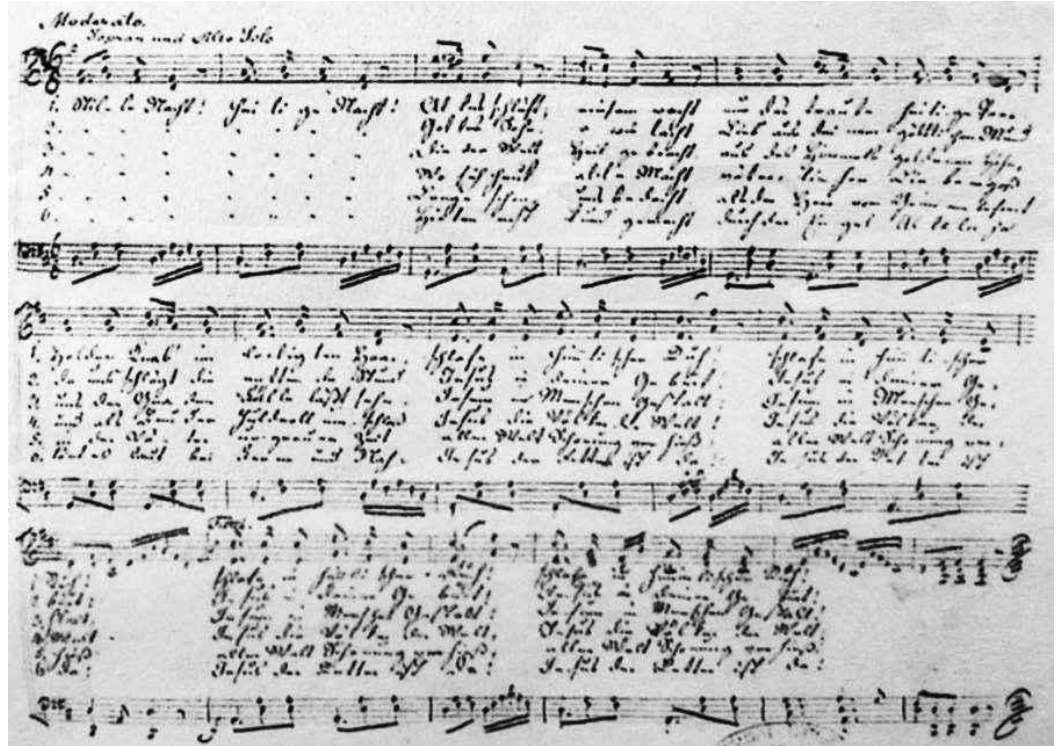 Moderato.
Sopran und Alto Solo
1. Stil le Nacht! Hei li ge Nacht! Al les schläft, einsam wacht nur das traute heilige Paar
2. Got tes Sohn, o wie lacht Lieb aus dei nem göttlichen Mund
3. Die der Welt Heil gebracht, aus des Himmels goldenen Höhen
4. Wo sich heut alle Macht
5. Lange schon uns bedacht als der Herr vom Grimme befreit
6. Hirten erst kund gemacht durch der Engel Al le lu ja
1. Holder Knab im lockigten Haar, schlafe in himmlischer Ruh! schlafe in himmlischer
2. da uns schlägt die rettende Stund Jesus in deiner Geburt! Jesus in deiner Ge-
3. uns der Gnaden Fülle läßt sehen Jesum in Menschen Gestalt! Jesum in Menschen Ge-
4. Jesus die Völker der Welt! Jesus die Völker der
5. in der Väter urgrauer Zeit aller Welt Schonung verhieß! aller Welt Schonung ver-
6. Tönt es laut bei Ferne und Nah. Jesus der Retter ist da! Jesus der Retter ist
1. Ruh! schlafe in himmlischer Ruh! schlafe in himmlischer Ruh!
2. burt! Jesus in deiner Geburt! Jesus in deiner Geburt!
3. stalt! Jesum in Menschen Gestalt! Jesum in Menschen Gestalt!
4. Welt! Jesus die Völker der Welt! Jesus die Völker der Welt!
5. hieß! aller Welt Schonung verhieß! aller Welt Schonung verhieß!
6. da! Jesus der Retter ist da! Jesus der Retter ist da!